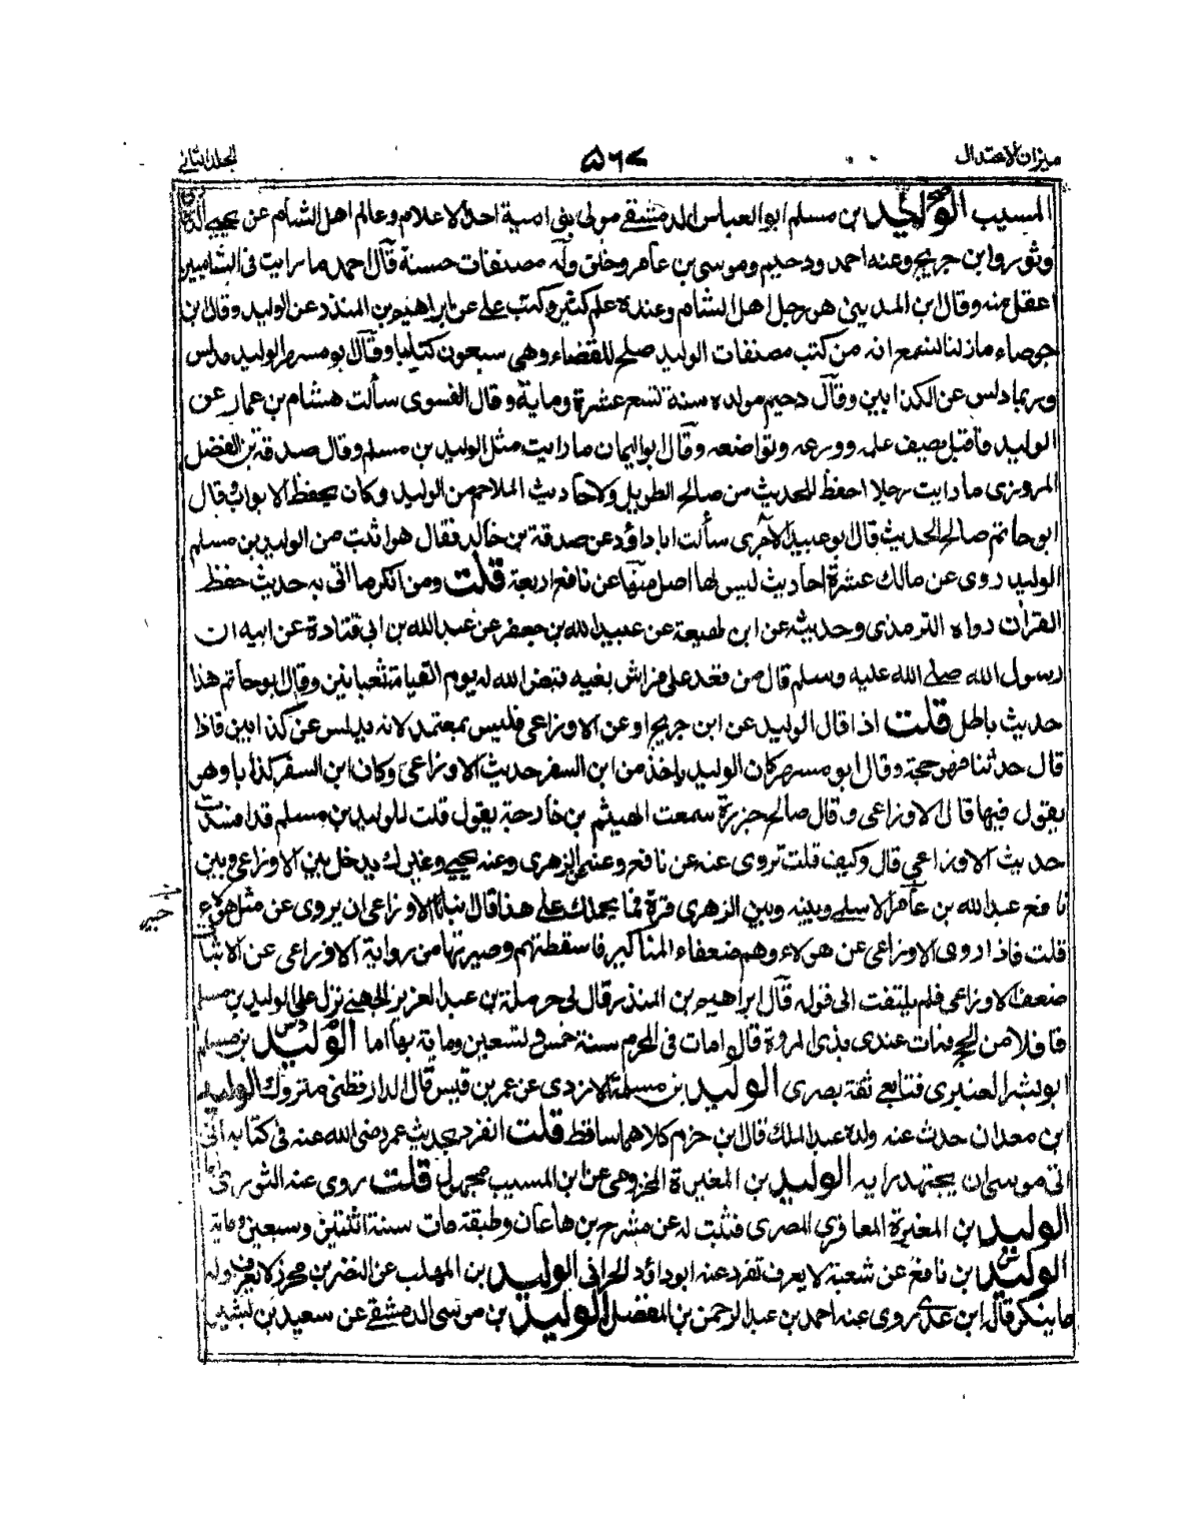 ميزان الاعتدال ۵۶۷ المجلد الثاني
المسيب الوليد بن مسلم ابو العباس الدمشقي مولى بني امية احد الاعلام وعالم اهل الشام عن يحيى
وثور وابن جريج وعنه احمد ودحيم وموسى بن عامر وخلق وله مصنفات حسنة قال احمد ما رايت في الشاميين
اعقل منه وقال ابن المديني هو رجل اهل الشام وعنده علم كثير وكتب علي عن ابراهيم بن المنذر عن الوليد وقال ابن
جوصاء مازلنا نسمع انه من كتب مصنفات الوليد صلح للقضاء وهي سبعون كتابا وقال ابو مسهر الوليد مدلس
وربما دلس عن الكذابين وقال دحيم مولده سنة تسع عشرة وماية وقال الفسوي سألت هشام بن عمار عن
الوليد فاقبل يصف علمه وورعه وتواضعه وقال ابو اليمان ما رايت مثل الوليد بن مسلم وقال صدقة بن الفضل
المروزي ما رايت رجلا احفظ للحديث من صالح الطويل ولاحاديث الملاحم من الوليد وكان يحفظ الابواب قال
ابو حاتم صالح الحديث قال ابو عبيد الآجري سألت ابا داؤد عن صدقة بن خالد فقال هو اثبت من الوليد بن مسلم
الوليد روى عن مالك عشرة احاديث ليس لها اصل منها عن نافع اربعة قلت ومن انكر ما اتى به حديث حفظ
القران رواه الترمذي وحديثه عن ابن لهيعة عن عبيد الله بن جعفر عن عبد الله بن ابي قتادة عن ابيه ان
رسول الله صلى الله عليه وسلم قال من قعد على فراش بغيه قيض الله له يوم القيامة ثعبانين وقال ابو حاتم هذا
حديث باطل قلت اذا قال الوليد عن ابن جريج او عن الاوزاعي فليس بمعتمد لانه يدلس عن كذابين فاذا
قال حدثنا فهو حجة وقال ابو مسهر كان الوليد ياخذ من ابن السفر حديث الاوزاعي وكان ابن السفر كذابا وهو
يقول فيها قال الاوزاعي وقال صالح جزرة سمعت الهيثم بن خارجة يقول قلت للوليد بن مسلم قد افسدت
حديث الاوزاعي قال وكيف قلت تروي عنه عن نافع وعنه عن الزهري وعنه يحيى وغيرك يدخل بين الاوزاعي وبين
نافع عبد الله بن عامر الاسلمي وبينه وبين الزهري قرة فما يحملك على هذا قال انبل الاوزاعي ان يروي عن مثل هؤلاء
قلت فاذا روى الاوزاعي عن هولاء وهم ضعفاء المناكير فاسقطتهم وصيرتها من رواية الاوزاعي عن الاثبات
ضعف الاوزاعي فلم يلتفت الى قوله قال ابراهيم بن المنذر قال لي حرملة بن عبد العزيز الجهني نزل علي الوليد بن مسلم
قافلا من الحج فمات عندي بذي المروة قالوا مات في المحرم سنة خمس وتسعين وماية بها اما الوليد بن مسلم
ابو بشر العنبري فتابعي ثقة بصري الوليد بن مسلمة الازدي عن عمر بن قيس قال الدارقطني متروك الوليد
ابن معدان حدث عنه ولده عبد الملك قال ابن حزم كلاهما ساقط قلت انفرد بحديث عمر رضي الله عنه في كتابه الى
ابي موسى ان يجتهد رايه الوليد بن المغيرة المخزومي عن ابن المسيب مجهول قلت روى عنه الثوري
الوليد ابن المغيرة المعافري المصري فثبت له عن مشرح بن هاعان وطبقته مات سنة اثنتين وسبعين وماية
الوليد بن نافع عن شعبة لا يعرف تفرد عنه ابو داؤد الحراني الوليد بن المهلب عن النضر بن محرز لا يعرف وله
ما ينكر قال ابن عدي روى عنه احمد بن عبد الرحمن بن المفضل الوليد بن موسى الدمشقي عن سعيد بن بشير